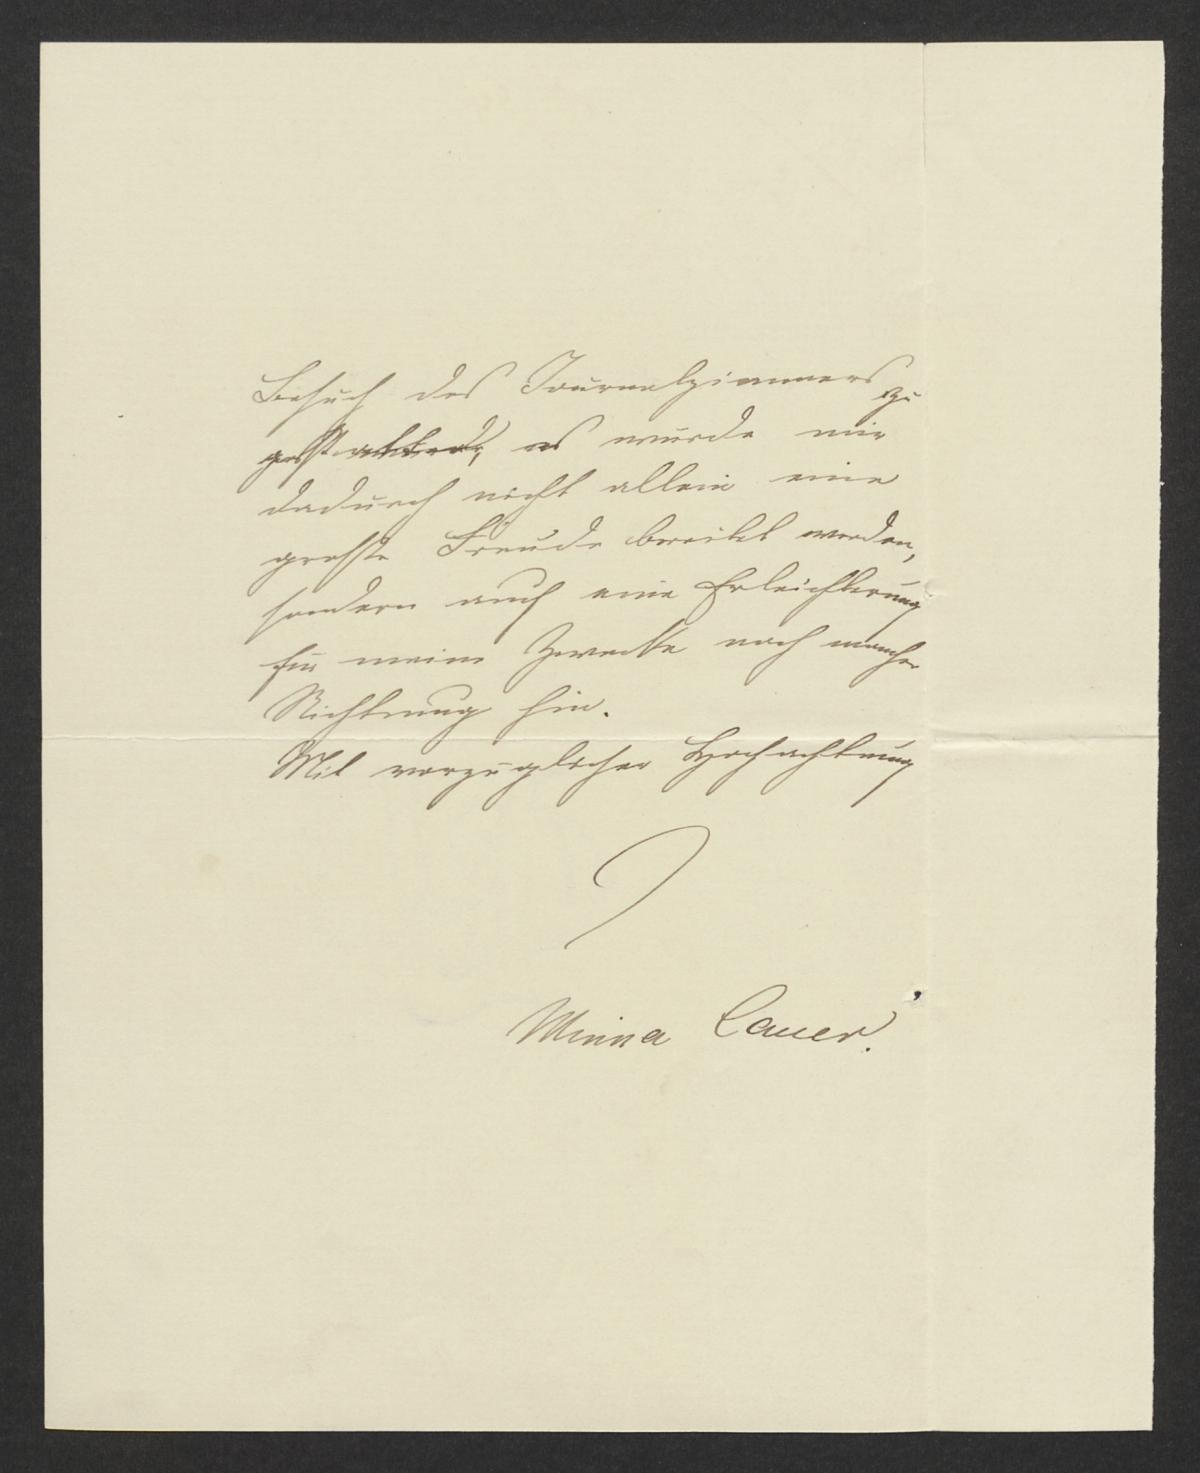 Besuch des Journalzimmers zu
gestatten, es würde mir
dadurch nicht allein eine
große Freude bereitet werden,
sondern auch eine Erleichterung
für meine Zwecke nach mancher
Richtung hin.
Mit vorzüglicher Hochachtung
Minna Cauer.